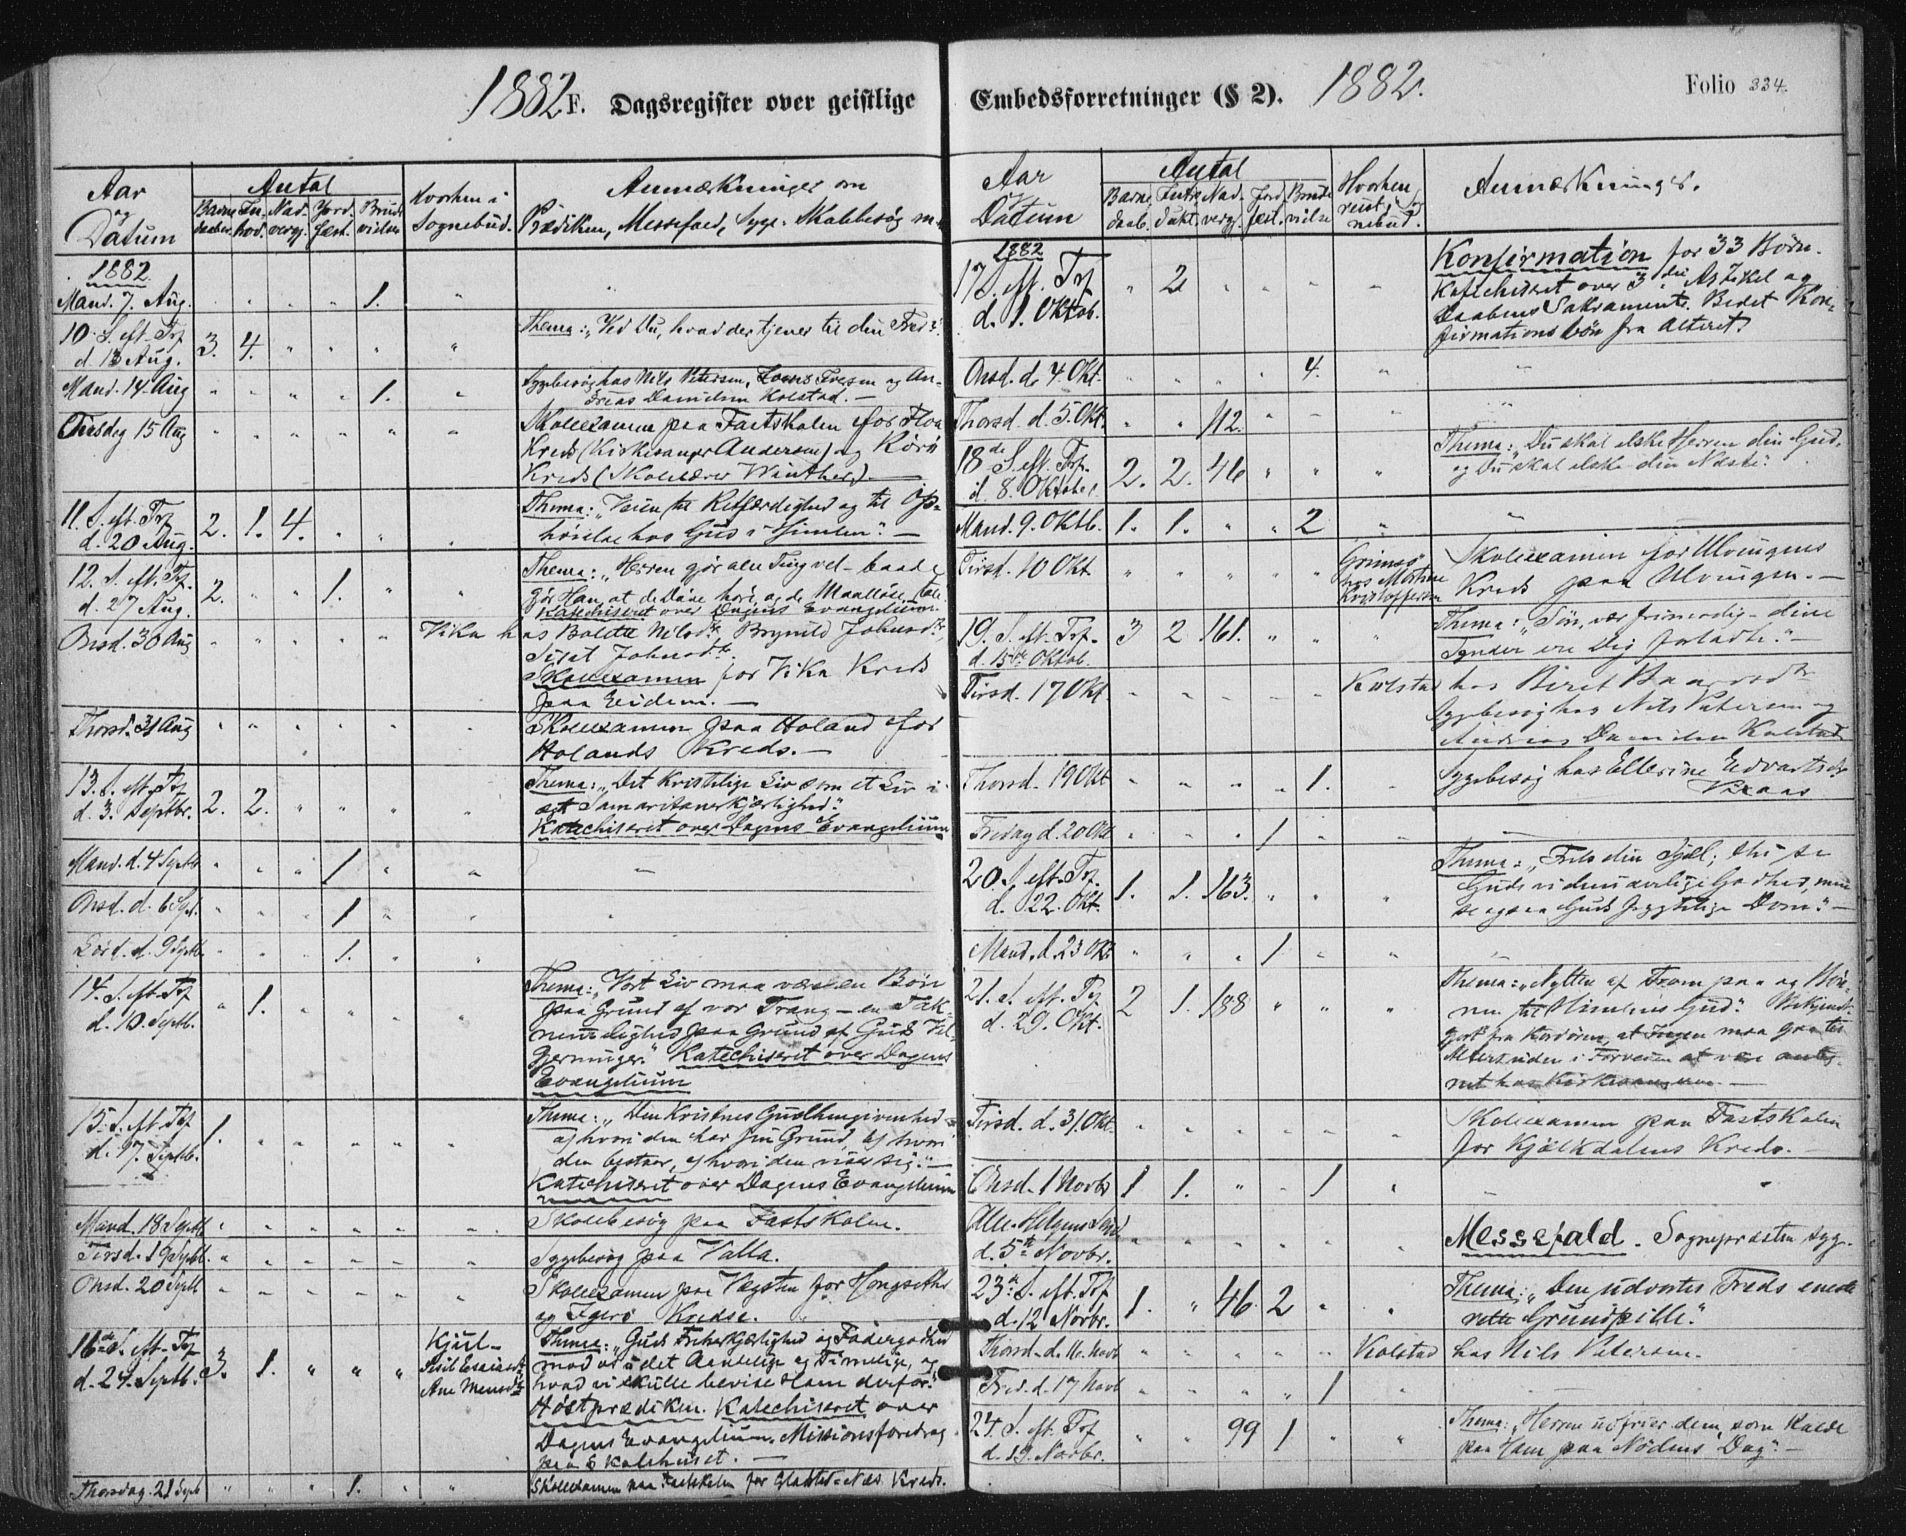 1882. F. Dagsregister over geistlige
Aar og Datum
Antal
Barne daaber. In- trod. Nad- verg. Jord- fæst. Brude- vielser
Hvorhen i Sognebud.
Anmærkninger om
Prædiken, Messefald, Syge- Skolebesøg m.
1882.
Mand. 7. Aug. " " " " 1. " "
10. S. eft. Trf. d. 13 Aug. 3. 4. " " " " Thema: "Ved Du, hvad der tjener til din Fred".
Mand. 14. Aug " " " " 1. " Sygebesøg hos Nils Petersen, og An-
dreas Danielsen Kolstad. —
Tirsdag 15 Aug " " " " " " Skolexamen paa Fastskolen for Floa
Kreds (Kirkesanger Andersen) og Rörö
Kreds (Skolelærer Winther). —
11. S. eft. Trf. d. 20 Aug. 2. 1. 4. " " " Thema: "Veien til Retfærdighed og til Op-
høielse hos Gud i Himlen." —
12. S. eft. Trf. d. 27 Aug. 2. " " 1. " " Thema: "Herren gjør alle Ting vel – baade
gjør Han, at de Døve høre, og de Maalløse tale
Katechiseret over Dagens Evangelium.
Onsd. 30 Aug " " " " " Vika hos Boletta Nilsdtr, Brynild Johnsdtr,
Sirat Johnsdtr.
Skolexamen for Vika Kreds
paa Eidem. —
Thorsd. 31 Aug " " " " " " Skolexamen paa Holand for
Holands Kreds. —
13. S. eft. Trf. d. 3. Septbr. 2. 2. " " " " Thema: "Det Kristelige Liv som et Liv i
Samaritanerkjærlighed".
Katechiseret over Dagens Evangelium
Mand. d. 4 Septb. " " " 1 " " "
Onsd. d. 6 Sept. " " " 1 " " "
Lörd. d. 9 Septb. " " " 1. " "
14. S. eft. Trf. d. 10. Septb. " 1. " " " " Thema: "Vort Liv maa være en Bön
paa Grund af vor Trang – en Tak-
nemmelighed paa Grund af Guds Vel-
gjerninger." Katechiseret over Dagens
Evangelium
15. S. eft. Trf. d. 17. Septb. 1. " " " " " Thema: "Den Kristnes Gudhengivenhed –
hvori den har sin Grund, hvori
den bestaar, hvori den viser sig." —
Katechiseret over Dagens Evangelium
Mand. 18 Septb. " " " " " " Skolebesøg paa Fastskolen.
Tirsd. 19 Septb. " " " " " " Sygebesøg paa Valla.
Onsd. 20 Septb " " " " " " Skolexamen paa for Hongseths
og Igerö Kredse.
16de S. eft. Trf. d. 24. Septb. 3. 1. " " " Kjul- Ane Thema: "Guds Frelserkjærlighed og Fadergodhed
mod os i det Aandelige og Timelige, og
hvad vi skulle bevise Ham derfor."
Höstprædiken. Katechiseret over
Dagens Evangelium. Missionsforedrag
paa Skolehuset. —
Thorsdag. 21 Septb " " " 1. " " Skolexamen paa Fastskolen for Kreds.
Embedsforretninger (§ 2). 1882.
Folio 334.
Aar og Datum
Antal
Barne daab. Intro- dukt. Nad- verg. Jord- fæst. Brude- vielse
Hvorhen reist i Sog- nebud.
Anmærkninger.
1882
17 S. eft. Trf. d. 1. Oktob. " 2 " " " " Konfirmation for 33 Børn.
Katechiseret over 3die Artikel og
Daabens Sakramente. Bedet Kon-
firmationsbøn fra Alteret.
Onsd. d. 4. Okt. " " " " 4. " "
Thorsd. d. 5 Okt. " " 112. " " " "
18de S. eft. Trf. d. 8. Oktober 2. 2. 46 " " " Thema: "Du skal elske Herren din Gud –
og Du skal elske din Næste".
Mand. 9. Oktb. 1. 1. " " 2 " "
Tirsd. 10 Okt " " " " " Grimsö hos Mortine Kristoffersen Skolexamen for Ulvingens
Kreds paa Ulvingen. —
19. S. eft. Trf. d. 15de Oktob. 3 2 161. " " " Thema: "Søn, vær frimodig – dine
Synder ere Dig forladte." —
Tirsd. 17 Okt. " " " " " Kolstad hos Beret
Sygebesøg hos Nils Petersen og
Andreas Danielsen Kolstad
Thorsd. 19 Okt " " " " 1. " Sygebesøg hos Ellerine Edvartsdtr
Fredag d. 20 Okt " " " 1 " " "
20. S. eft. Trf. d. 22. Okt. 1. 1. 163. " " " Thema: "Frels din Sjæl; thi se
Guds Godhed, men
se ogsaa Guds Dom." —
Mand. d. 23 Okt. " " " 1 " " "
21. S. eft. Trf. d. 29. Okt. 2 1. 188 " " " Thema: "Nytten af Troen paa og Bön-
nen til Himlens Gud". Bekjendt-
gjort fra Kordören, at Ingen maa gaa til
Alters uden i Forveien at være anteg-
net hos Kirkesangeren. —
Tirsd. d. 31. Okt. " " " " " " Skolexamen paa Fastskolen
for Kjölkdalens Kreds. —
Onsd. 1 Novbr 1 1. " " 1 " "
Alle-Helgens Sönd. d. 5te Novbr. " " " " " " Messefald. Sognepræsten syg.
23de S. eft. Trf. d. 12 Novbr. 1. " 46. 2 " " Thema: "Den udvortes Freds eneste
rette Grundpille."
Thorsd. d. 16. Novb " " " " " Kolstad hos Nils Petersen.
Fred. d. 17 Novb " " " " 1 " "
24. S. eft. Trf. d. 19. Novbr. " " 99 1 " " Thema: "Herren udfrier dem, som kalde
paa Ham paa Nødens Dag". —